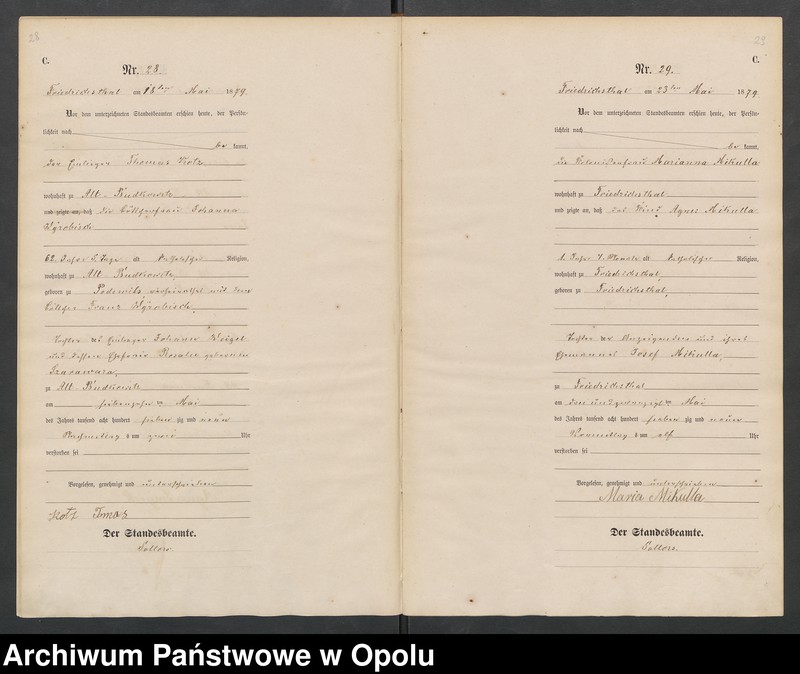 28
C.
Nr. 28.
Friedrichsthal am 18ten Mai 1879.
Vor dem unterzeichneten Standesbeamten erschien heute, der Persön-
lichkeit nach
be kannt,
der Einlieger Thomas Kotz
wohnhaft zu Alt Budkowitz
und zeigte an, daß die Johanna
62 Jahre 5 Tage alt katholischer Religion,
wohnhaft zu Alt Budkowitz
geboren zu Podewils verheirathet mit dem
Franz
Tochter des Einlieger Johann Weigel
und dessen Ehefrau Rosalie geborene
zu Alt Budkowitz
am siebenzehnten Mai
des Jahres tausend acht hundert sieben zig und neun
Nachmittag s um zwei Uhr
verstorben sei
Vorgelesen, genehmigt und unterschrieben
Kotz Tomas
Der Standesbeamte.
29
C.
Nr. 29.
Friedrichsthal am 23ten Mai 1879.
Vor dem unterzeichneten Standesbeamten erschien heute, der Persön-
lichkeit nach
be kannt,
die Kolonistenfrau Marianna Mikulla
wohnhaft zu Friedrichsthal
und zeigte an, daß das Kind Agnes Mikulla
1 Jahr 7 Monate alt katholischer Religion,
wohnhaft zu Friedrichsthal,
geboren zu Friedrichsthal,
Tochter der Anzeigenden und ihres
Ehemannes Josef Mikulla,
zu Friedrichsthal
am drei und zwanzigsten Mai
des Jahres tausend acht hundert sieben zig und neun
Vormittag s um elf Uhr
verstorben sei
Vorgelesen, genehmigt und unterschrieben
Maria Mikulla
Der Standesbeamte.
Archiwum Państwowe w Opolu